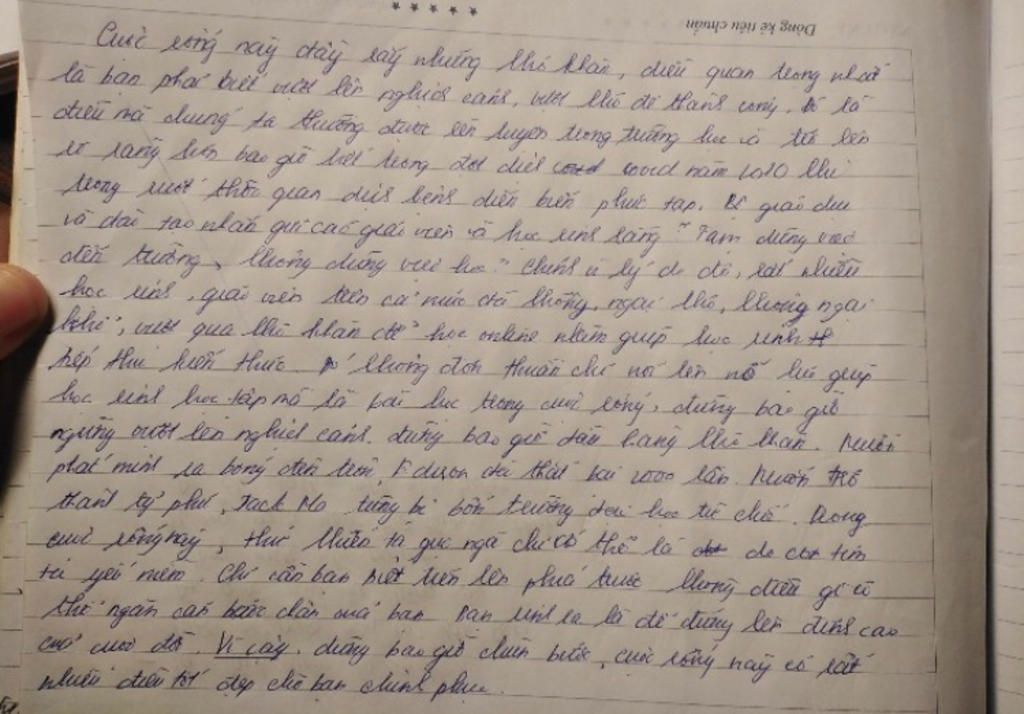 ★ ★ ★ ★ ★
Dòng kẻ tiêu chuẩn
Cuộc sống này đầy rẫy những khó khăn, điều quan trọng nhất
là bạn phải biết vượt lên nghịch cảnh, vượt khó để thành công. Đó là
điều mà chúng ta thường được rèn luyện trong trường học và trở lên
rõ ràng hơn bao giờ hết trong đợt dịch covid năm 2020 khi
trong suốt thời gian dịch bệnh diễn biến phức tạp. Bộ giáo dục
và đào tạo nhắn gửi các giáo viên và học sinh rằng "Tạm dừng việc
đến trường, không dừng việc học" Chính vì lý do đó, rất nhiều
học sinh, giáo viên trên cả nước đã không ngại khó, không ngại
khổ, vượt qua khó khăn để học online nhằm giúp học sinh
tiếp thu kiến thức. không đơn thuần chỉ nói lên giúp
học sinh học tập mà là bài học trong cuộc sống, đừng bao giờ
ngừng vượt lên nghịch cảnh, đừng bao giờ đầu hàng khó khăn. Muốn
phát minh ra bóng đèn tròn, Edison đã thất bại 1000 lần. Muốn trở
thành tỷ phú, Jack Ma từng bị bốn trường đại học từ chối. Trong
cuộc sống này, thứ khiến ta gục ngã chỉ có thể là do con tim
ta yếu mềm. Chỉ cần bạn biết tiến lên phía trước không điều gì có
thể ngăn cản bước chân của bạn. Bạn sinh ra là để đứng lên đỉnh cao
của cuộc đời. Vì vậy, đừng bao giờ chùn bước, cuộc sống này có rất
nhiều điều tốt đẹp chờ bạn chinh phục.